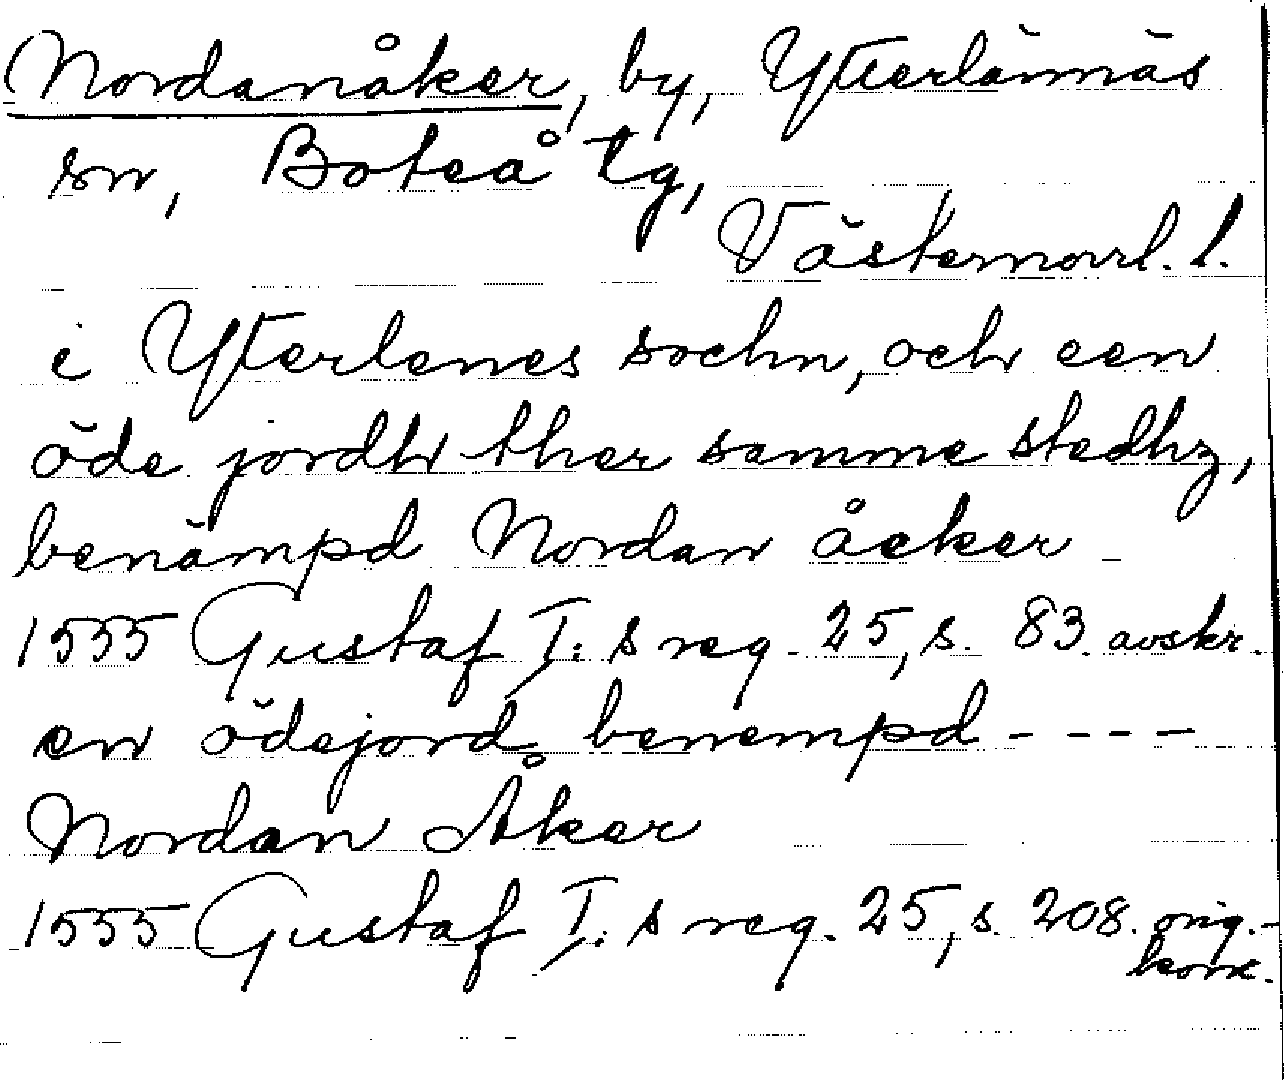 Nordanåker, by, Ytterlännäs
sn, Boteå tg,
Västernorrl. l.
i Ytterlenes sochn, och een
öde jordh ther samme stedhz,
benämpd Nordan åcker -
1555 Gustaf I:s reg. 25, s. 83. avskr.
en ödejord benempd - - - -
Nordan Åker
1555 Gustaf I:s reg. 25, s. 208. orig.-
konc.